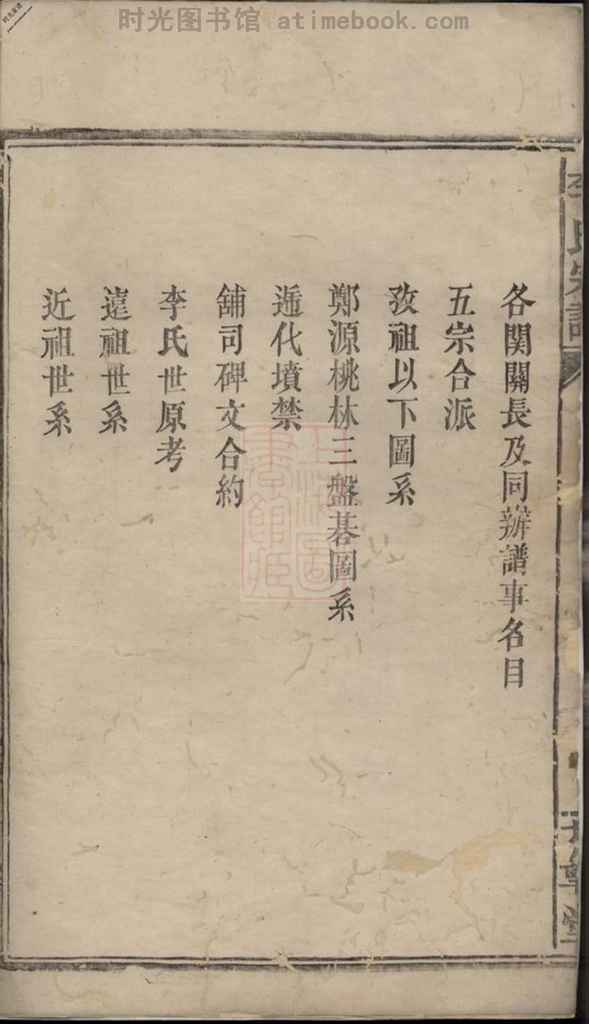 时光图书馆 - atimebook.com
各関關長及同辦譜事名目
五宗合派
敄祖以下圖系
鄭源桃林三盤碁圖系
遞代墳禁
舖司碑文合約
李氏世原考
遠祖世系
近祖世系
李氏宗譜